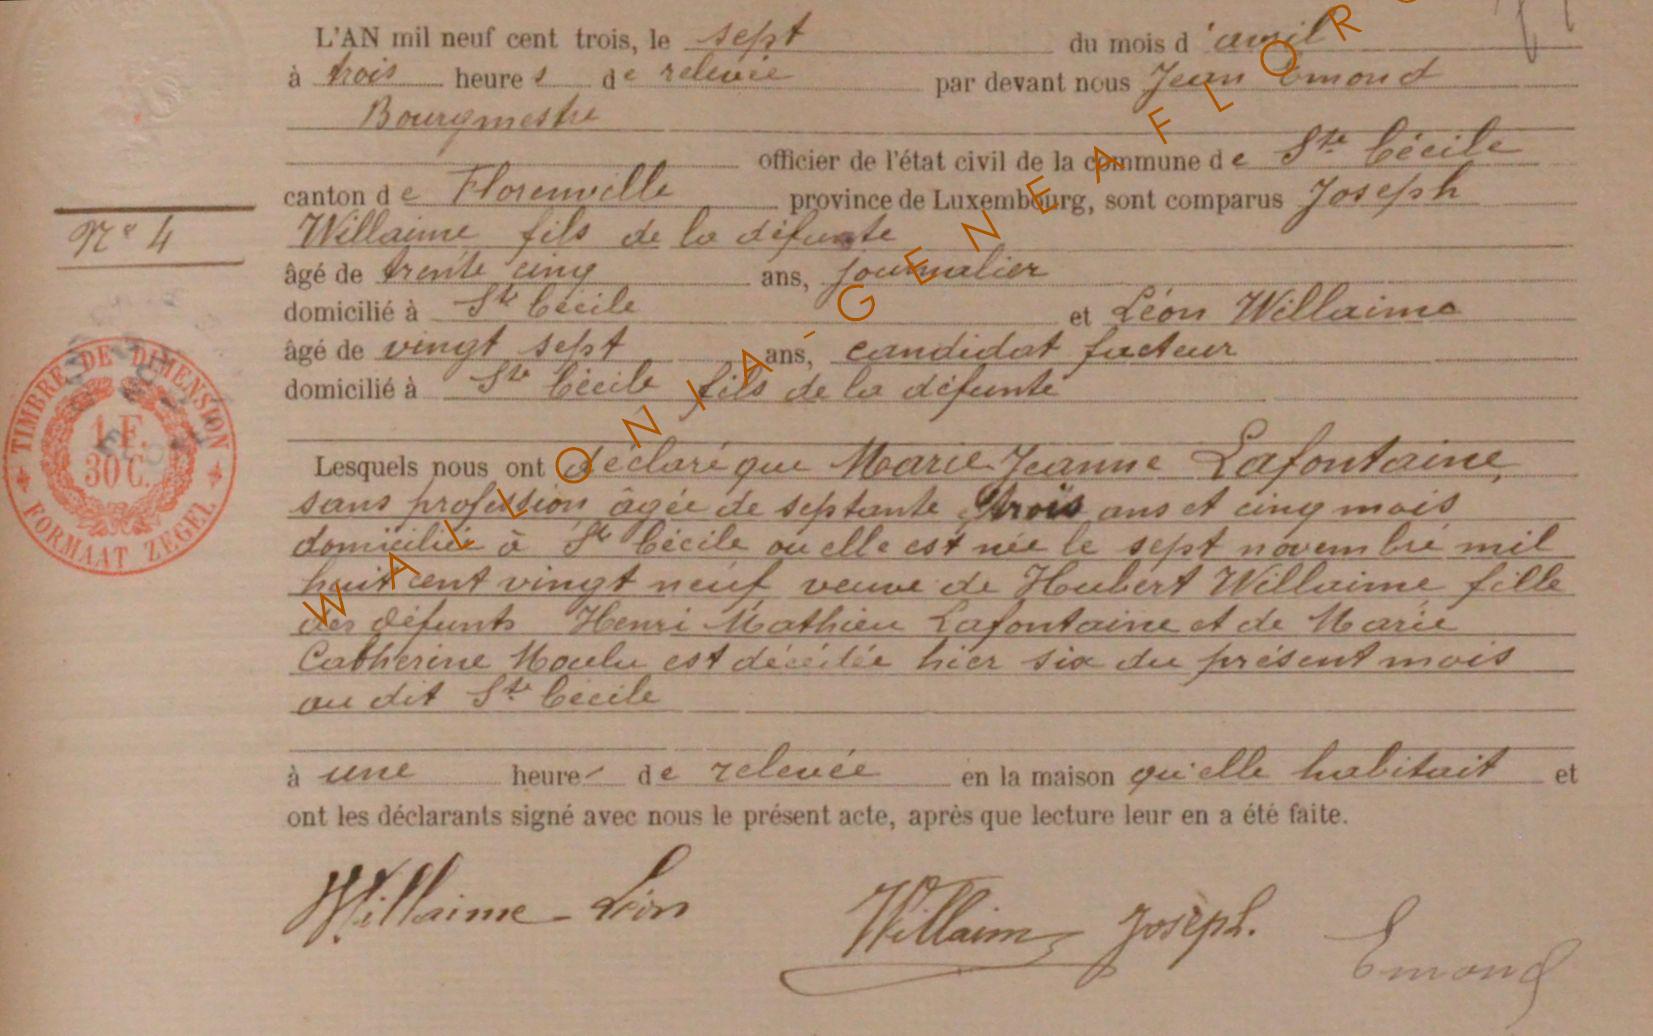 L'AN mil neuf cent trois, le sept du mois d'avril
à trois heures de relevée par devant nous Jean Emond
Bourgmestre
officier de l'état civil de la commune de Ste Cécile
canton de Florenville province de Luxembourg, sont comparus Joseph
Willaime fils de la défunte
âgé de trente cinq ans, journalier
domicilié à Ste Cécile et Léon Willaime
âgé de vingt sept ans, candidat facteur
domicilié à Ste Cécile fils de la défunte
Lesquels nous ont déclaré que Marie Jeanne Lafontaine,
sans profession âgée de septante trois ans et cinq mois
domiciliée à Ste Cécile où elle est née le sept novembre mil
huit cent vingt neuf veuve de Hubert Willaime fille
des défunts Henri Mathieu Lafontaine et de Marie
Catherine Moulu est décédée hier six du présent mois
au dit Ste Cécile
à une heure de relevée en la maison qu'elle habitait et
ont les déclarants signé avec nous le présent acte, après que lecture leur en a été faite.
Willaime Léon Willaime Joseph. Emond
No 4
TIMBRE DE DIMENSION
1 F.
30 C.
FORMAAT ZEGEL
WALLONIA-GENEAFLOR